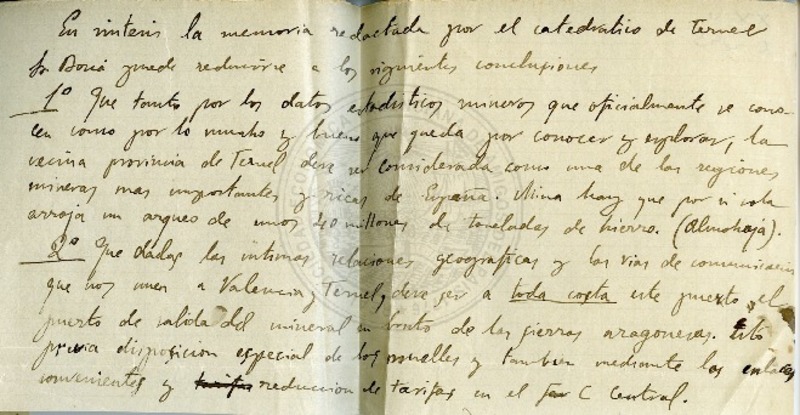 En sintesis la memoria redactada por el catedratico de Teruel
Sr Boria puede reducirse a los siguientes conclusiones
1º Que tanto por los datos estadísticos mineros que oficialmente se cono-
cen como por lo mucho y bueno que queda por conocer y explorar, la
vecina provincia de Teruel debe ser considerada como una de las regiones
mineras mas importantes y ricas de España. Mina hay que por si sola
arroja un arqueo de unos 40 millones de toneladas de hierro. (Almohaja).
2º Que dadas las intimas relaciones geograficas y las vias de comunicacion
que nos unen a Valencia y Teruel, debe ser a toda costa este puerto el
puerto de salida del mineral en bruto de las sierras aragonesas. Esto
previa disposicion especial de los muelles y tambien mediante los enlaces
convenientes y tarifas reduccion de tarifas en el C Central.